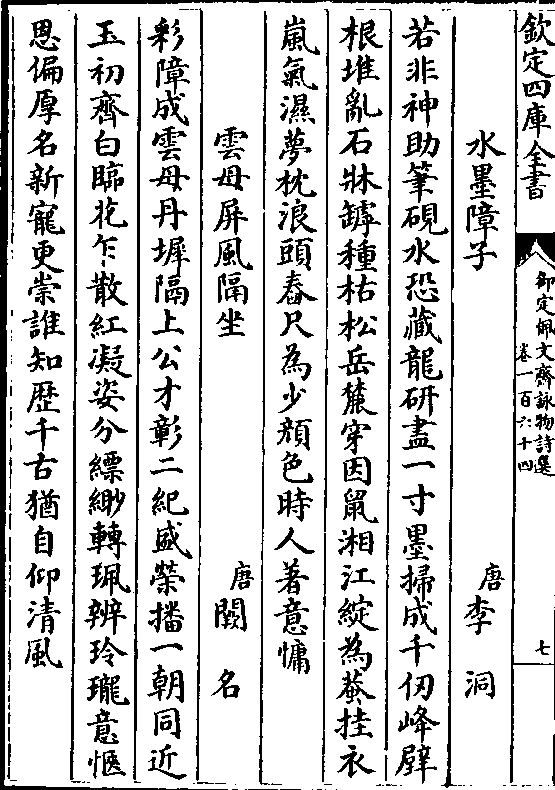 欽定四庫全書
御定佩文齋詠物詩選
卷一百六十四
七
水墨障子 唐李洞
若非神助筆硯水恐藏龍研盡一寸墨掃成千仞峰壁
根堆亂石牀罅種枯松岳麓穿因鼠湘江綻為蛬挂衣
嵐氣濕夢枕浪頭舂尺為少顏色時人著意慵
雲母屏風隔坐 唐闕名
彩障成雲母丹墀隔上公才彰二紀盛榮播一朝同近
玉初齊白臨花乍散紅凝姿分縹緲轉珮辨玲瓏意愜
恩偏厚名新寵更崇誰知歴千古猶自仰清風